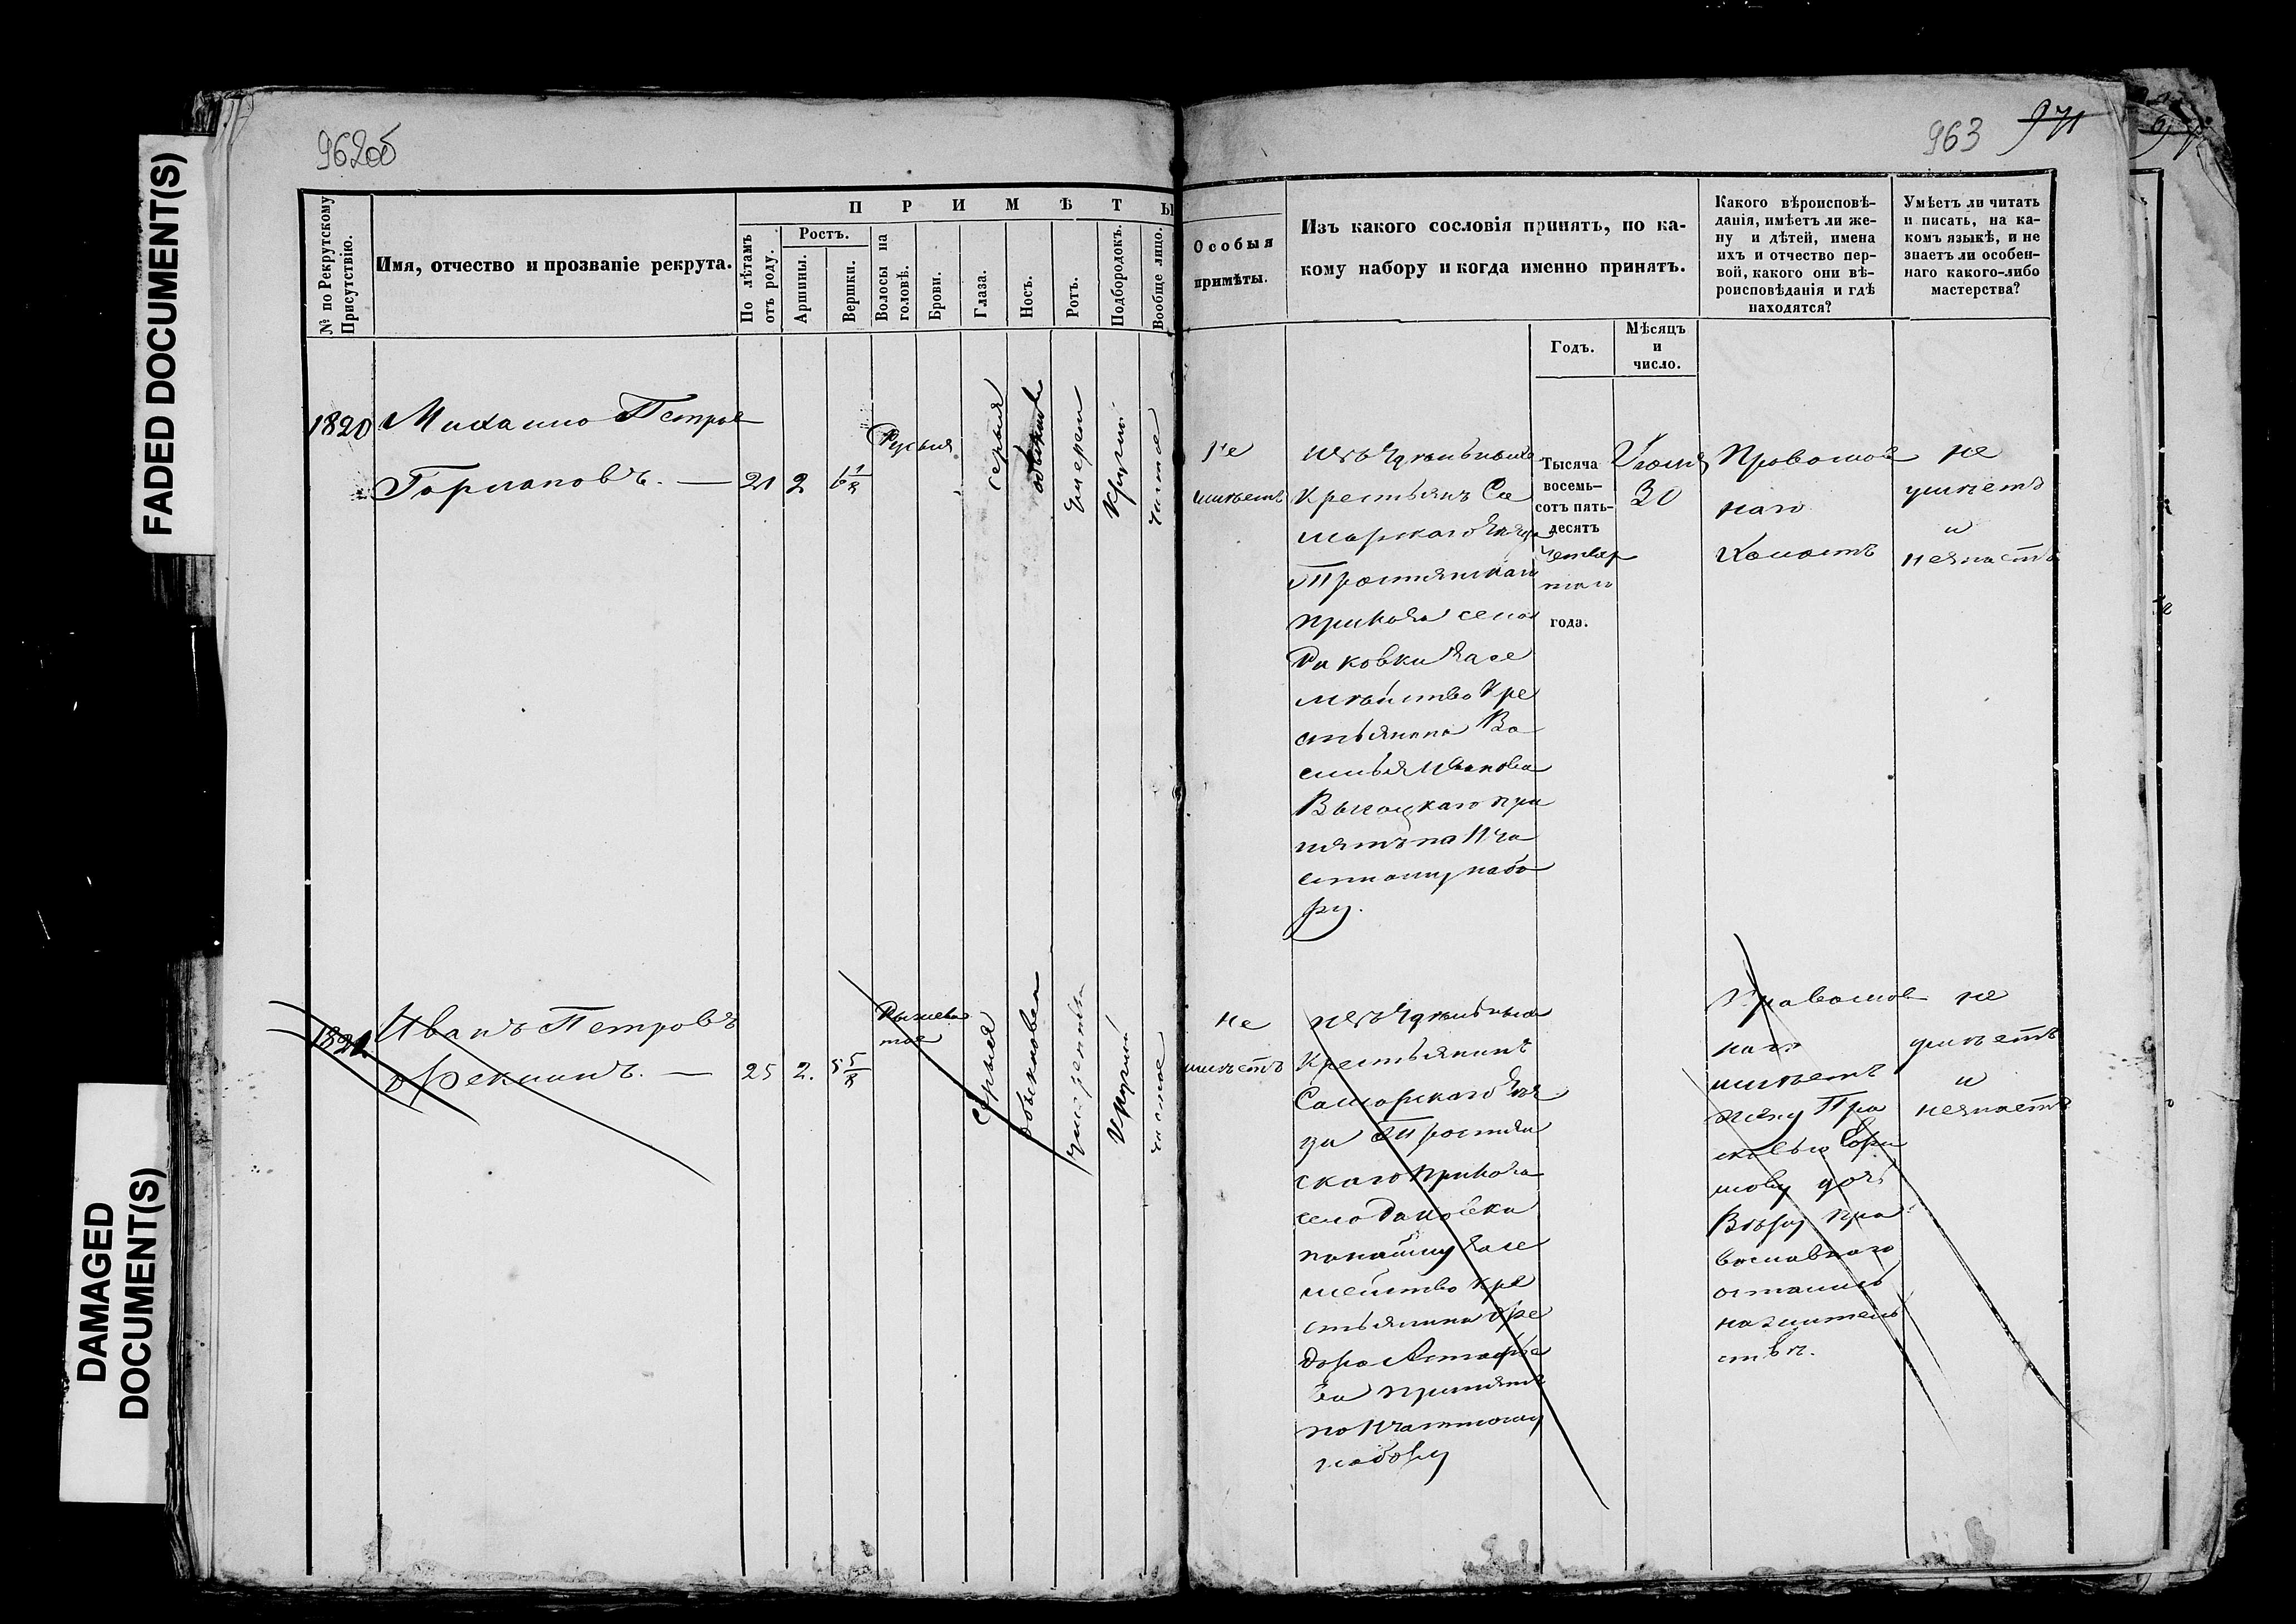 FADED DOCUMENT(S)
DAMAGED
DOCUMENT(S)
962об
963 971
П Р И М Ѣ Т Ы
№ по Рекрутскому
Присутствію.
Имя, отчество и прозваніе рекрута.
По лѣтамъ
отъ роду.
Ростъ.
Аршины.
Вершки.
Волосы на
головѣ.
Брови.
Глаза.
Носъ.
Ротъ.
Подбородокъ.
Вообще лицо.
Особыя
примѣты.
Изъ какого сословія принятъ, по ка-
кому набору и когда именно принятъ.
Годъ.
Мѣсяцъ
и
число.
Какого вѣроисповѣ-
данія, имѣетъ ли же-
ну и дѣтей, имена
ихъ и отчество пер-
вой, какого они вѣ-
роисповѣданія и гдѣ
находятся?
Умѣетъ ли читать
и писать, на ка-
комъ языкѣ, и не
знаетъ ли особен-
наго какого-либо
мастерства?
1820
Михаило Петров
21 2 6 1/8
Русыя
серыя
умерен
круглой
чистое
не
имѣетъ
изъ Удѣльныхъ
Крестьянъ Са
марскаго
приказа села
Раковки за се
мѣйство Кре
стьянина Ва
силья Иванова
Высоцкаго при
нятъ по Ича
стному набо
ру.
Тысяча
восемь-
сотъ пять-
десятъ
четвер
таго
года.
Іюня
30
Православ
наго
Холостъ
не
умѣетъ
и
незнаетъ
1821
Иванъ Петровъ
25 2. 5 5/8
Рыжева
тые
Серыя
обыкновен
умеренный
круглой
чистое
не
имѣетъ
изъ Удѣльныхъ
Крестьянинъ
Самарскаго уѣз
да
скаго приказа
села Раковки
по найму за се
мейство кре
стьянина Фе
дора Астафье
ва принятъ
по Ичастному
набору
Православ
наго
имѣетъ
жену Пра
сковью
дочь
Вѣру пра
вославнаго
остались
на житель
ствѣ.
не
умѣетъ
и
незнаетъ